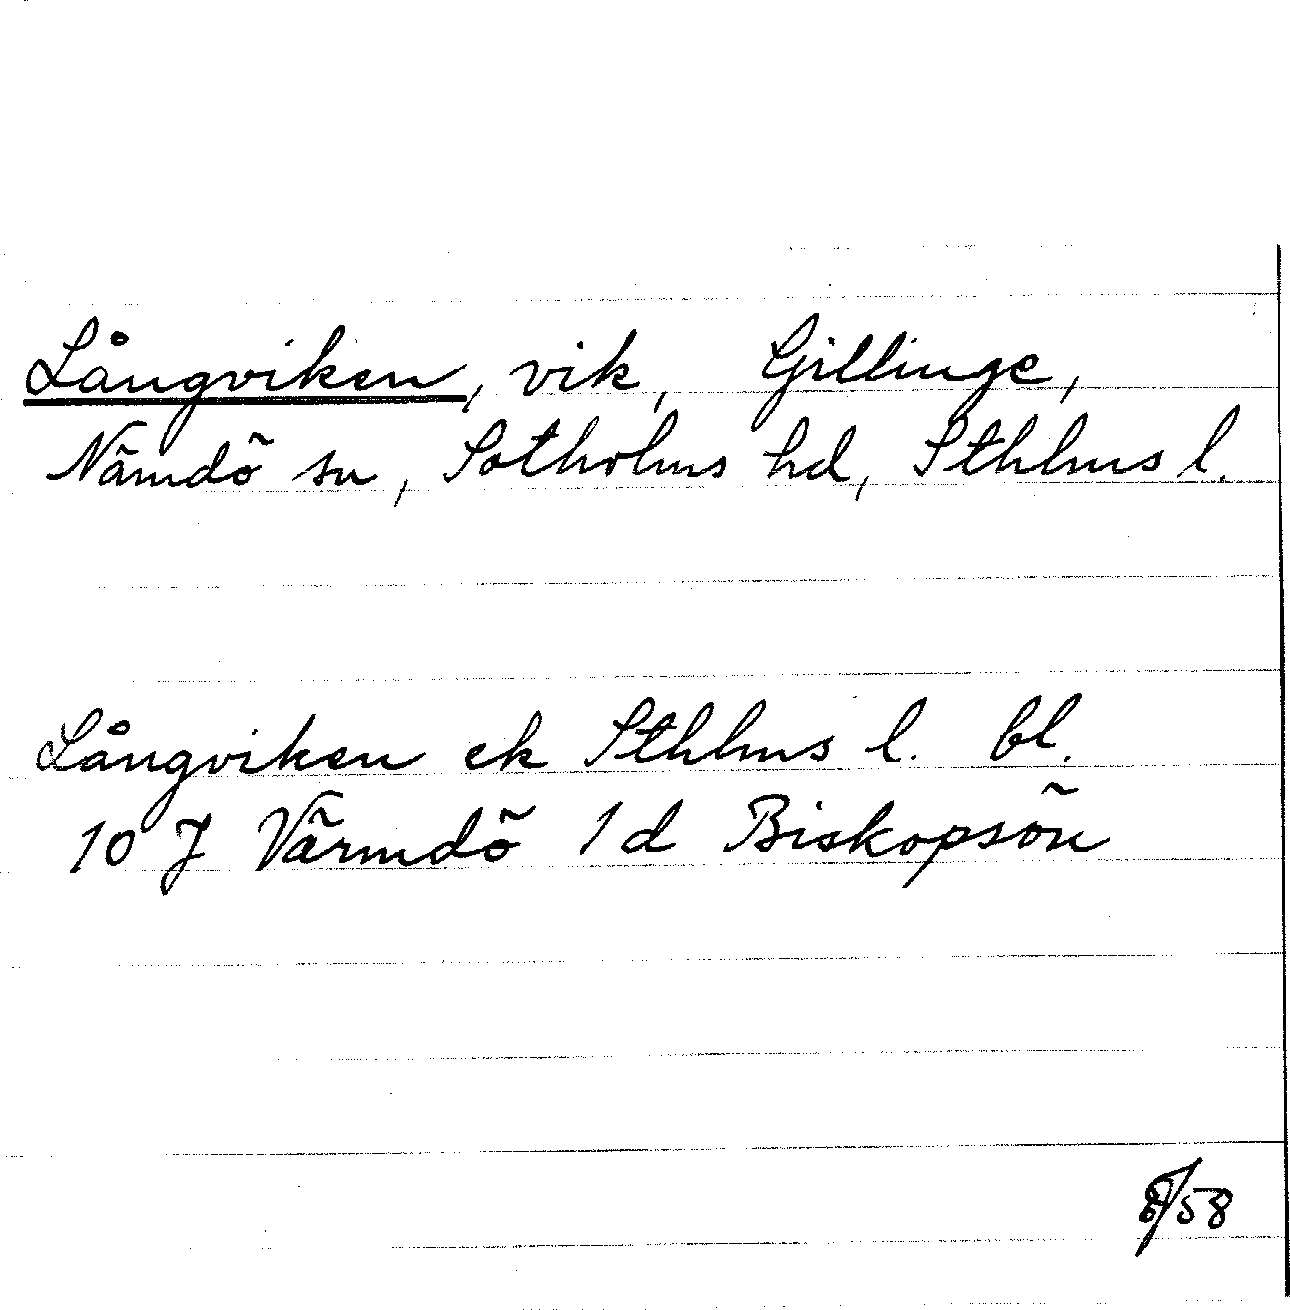 Långviken, vik, Gillinge,
Nämdö sn, Sotholms hd, Sthlms l.
Långviken ek Sthlms l. bl.
10 J Värmdö 1 d Biskopsön
/58